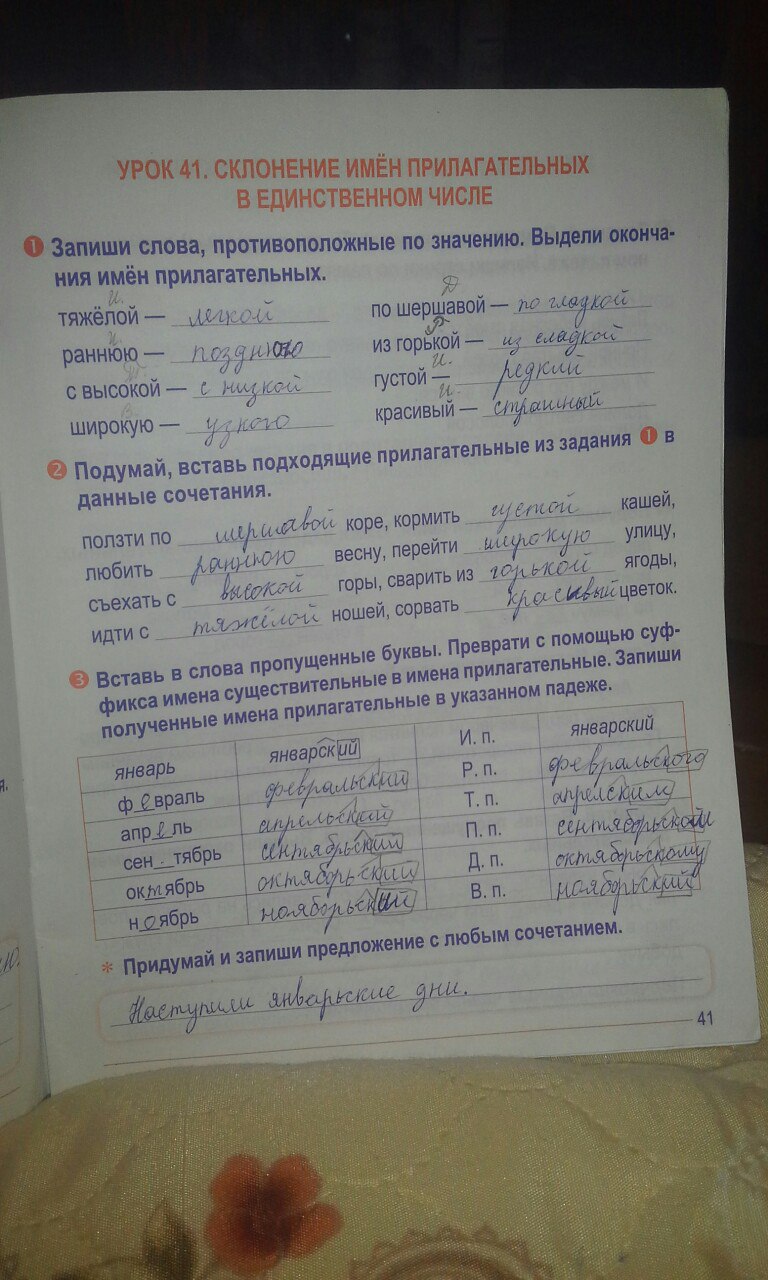 УРОК 41. СКЛОНЕНИЕ ИМЁН ПРИЛАГАТЕЛЬНЫХ
В ЕДИНСТВЕННОМ ЧИСЛЕ
1 Запиши слова, противоположные по значению. Выдели оконча-
ния имён прилагательных.
И. Д
тяжёлой — легкой по шершавой — по гладкой
И. Р.
раннюю — позднюю из горькой — из сладкой
И.
с высокой — с низкой густой — редкий
В. И.
широкую — узкого красивый — страшный
2 Подумай, вставь подходящие прилагательные из задания 1 в
данные сочетания.
ползти по шершавой коре, кормить густой кашей,
любить раннюю весну, перейти широкую улицу,
съехать с высокой горы, сварить из горькой ягоды,
идти с тяжёлой ношей, сорвать красивый цветок.
3 Вставь в слова пропущенные буквы. Преврати с помощью суф-
фикса имена существительные в имена прилагательные. Запиши
полученные имена прилагательные в указанном падеже.
январь январский И. п. январский
февраль февральский Р. п. февральского
апрель апрельский Т. п. апрелским
сен . тябрь сентябрьский П. п. сентябрьском
октябрь октябрьский Д. п. октябрьскому
ноябрь ноябрьский В. п. ноябрьский
* Придумай и запиши предложение с любым сочетанием.
Наступили январьские дни.
41